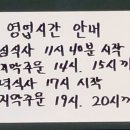 영업시간 안내
점심식사 11시 40분 시작
마지막주문 14시. 15시까지
저녁식사 17시 시작
마지막주문 19시. 20시까지